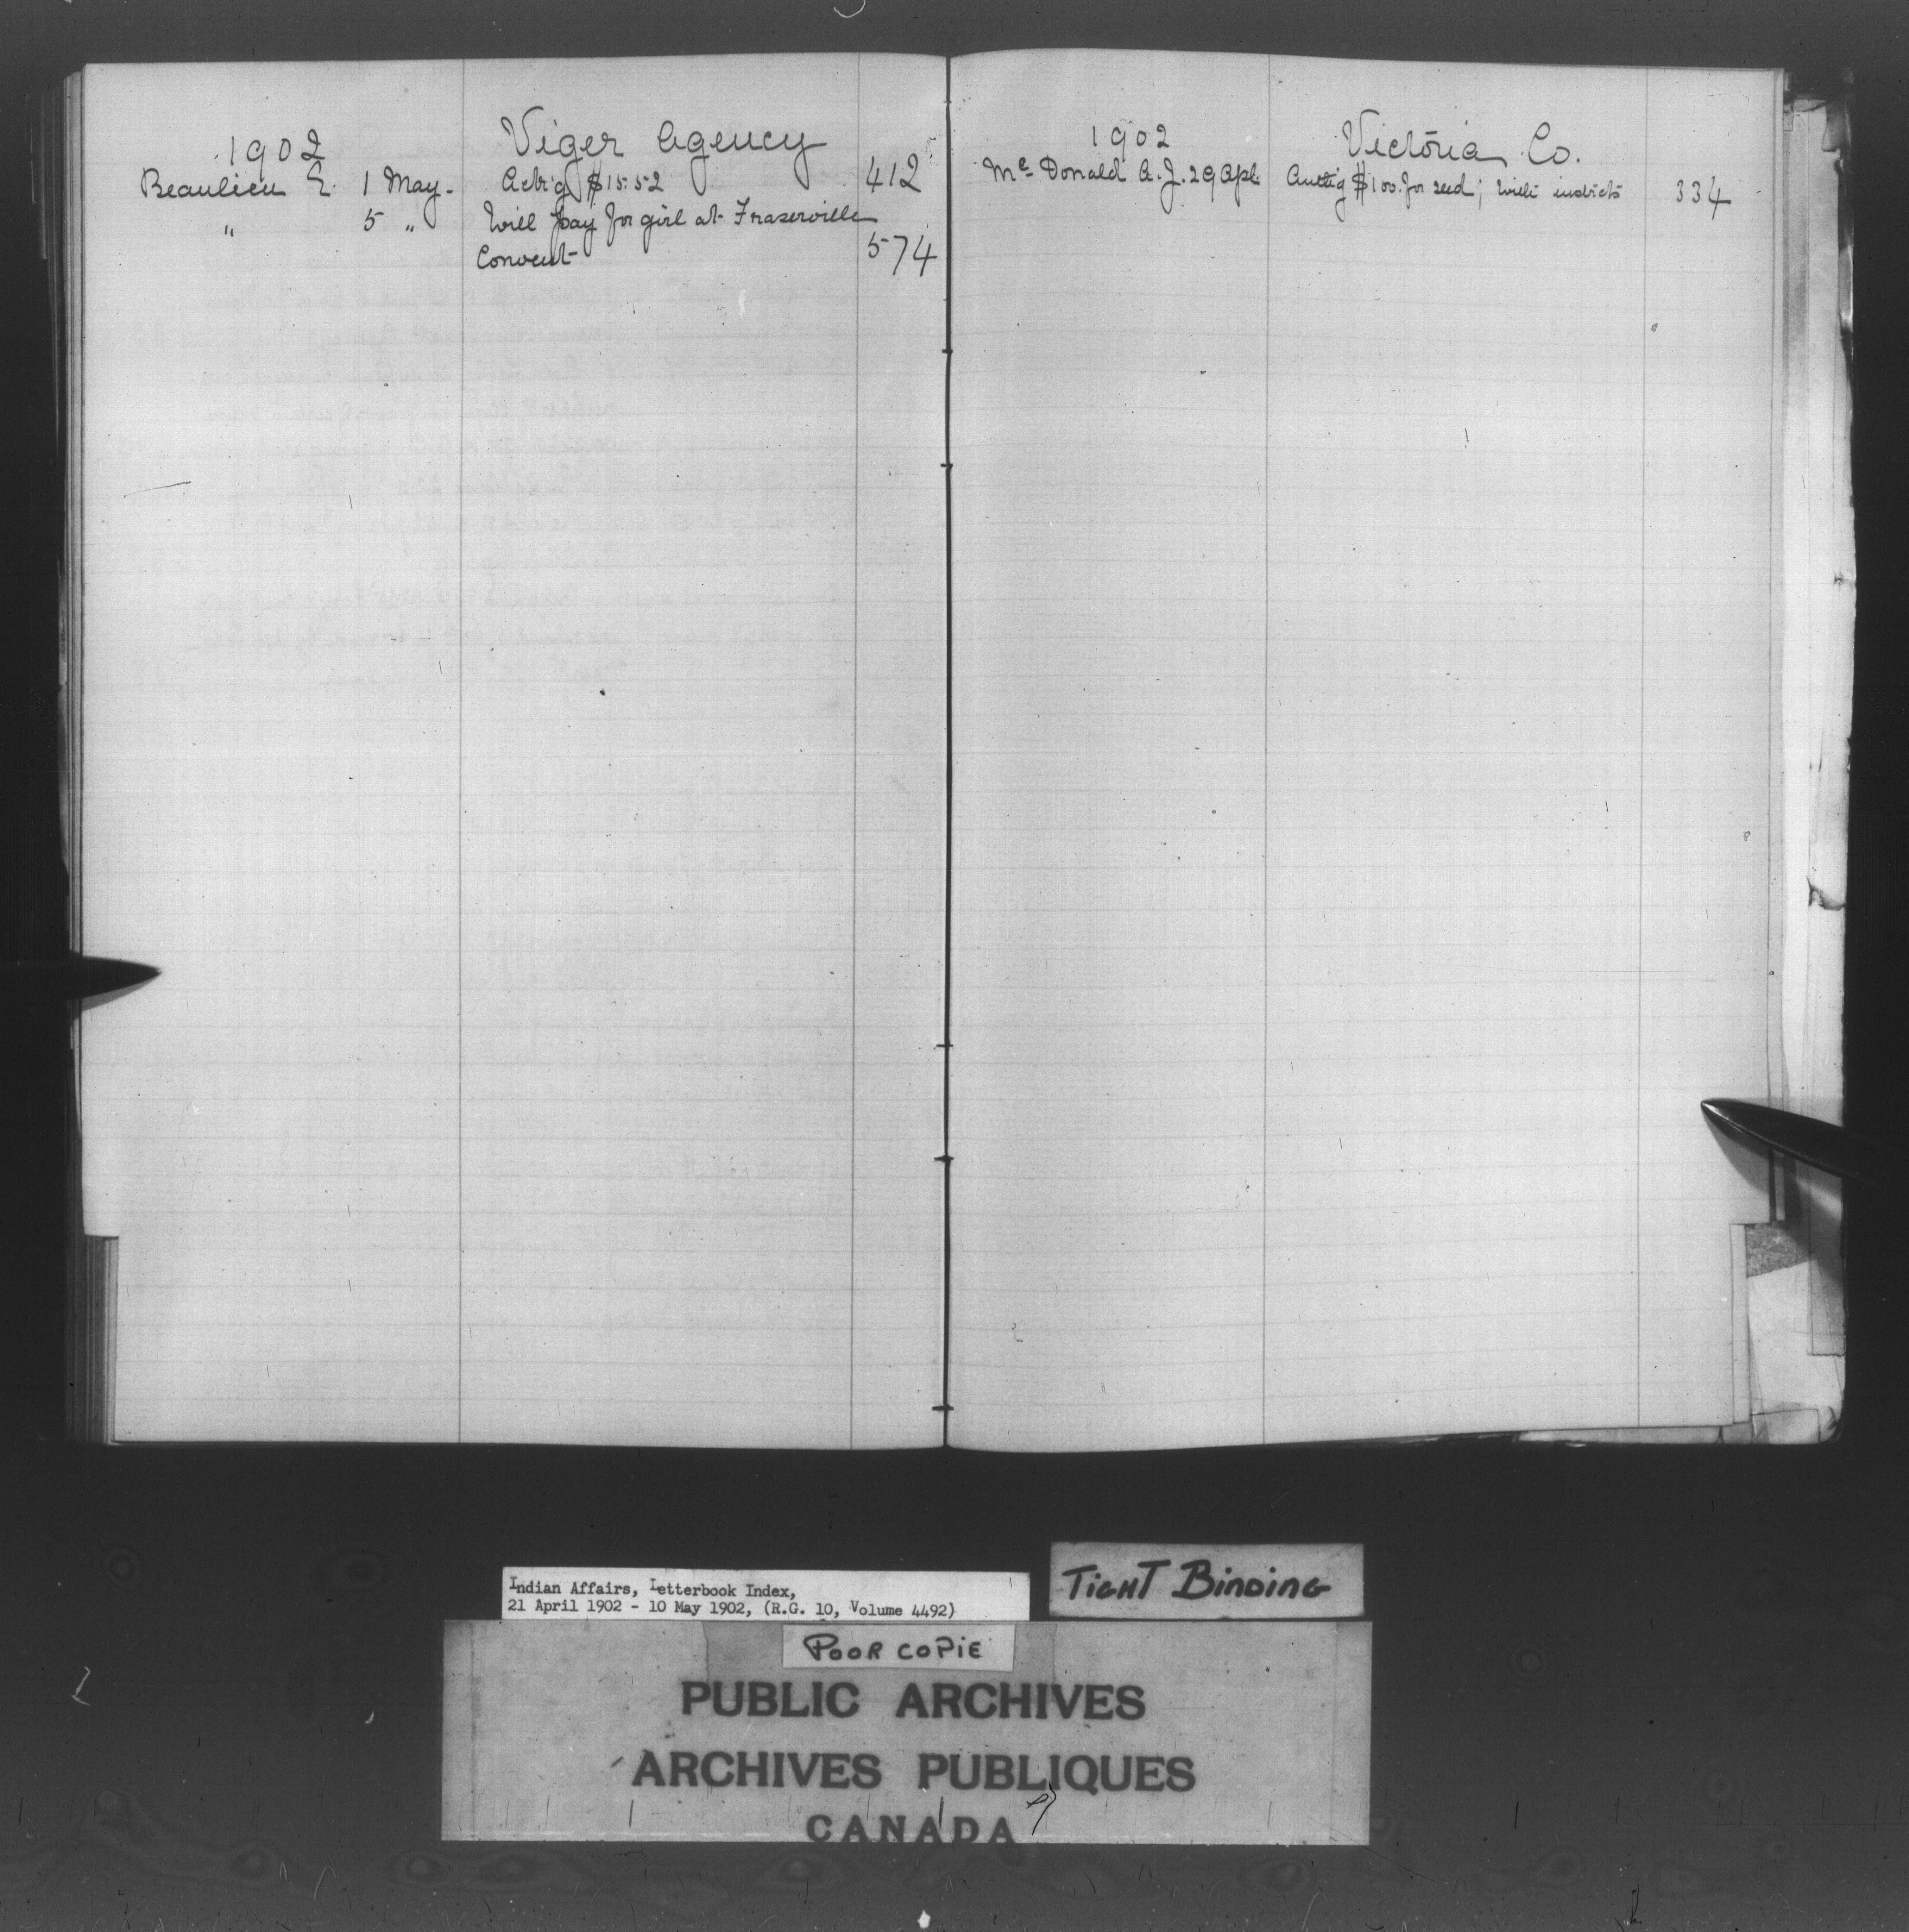 1902 Viger Agency
Beaulieu E. 1 May. Ack'g $15.52 412
" 5 " Will pay for girl at Fraserville
Convent 574
1902 Victoria Co.
Mc Donald A.J. 29 Apl. $100. for seed; with 334
Indian Affairs, Letterbook Index,
21 April 1902 - 10 May 1902, (R.G. 10, Volume 4492)
TIGHT BINDING
POOR COPIE
PUBLIC ARCHIVES
ARCHIVES PUBLIQUES
CANADA